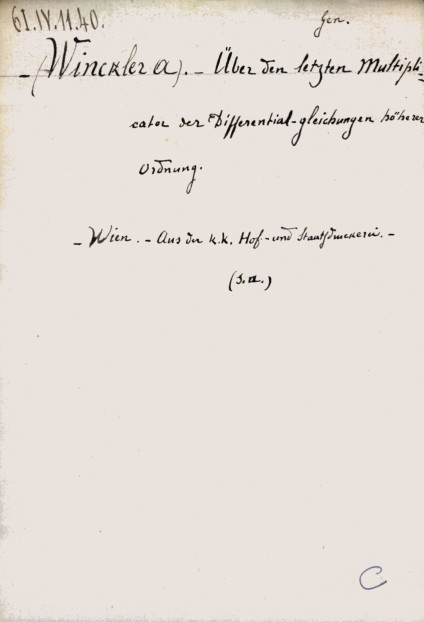 61.IV.11.40.
Gen.
- (Winckler A). - Über den letzten Multipli=
cator der Differential-gleichungen höherer
Ordnung.
- Wien. - Aus der k.k. Hof- und Staatsdruckerei. -
(s.a.)
C